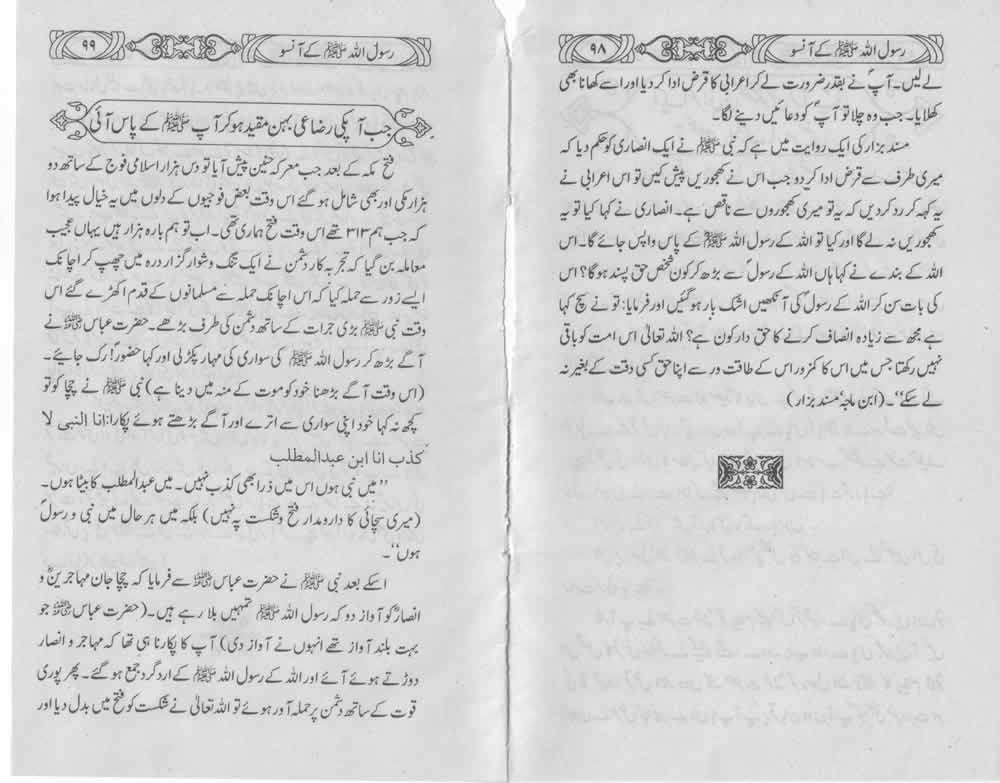 رسول اللہ ﷺ کے آنسو
۹۸
لے لیں۔ آپؐ نے بقدر ضرورت لے کر اعرابی کا قرض ادا کر دیا اور اسے کھانا بھی
کھلایا۔ جب وہ چلا تو آپؐ کو دعائیں دینے لگا۔
مسند بزار کی ایک روایت میں ہے کہ نبی ﷺ نے ایک انصاری کو حکم دیا کہ
میری طرف سے قرض ادا کر دو جب اس نے کھجوریں پیش کیں تو اس اعرابی نے
یہ کہہ کر رد کر دیں کہ یہ تو میری کھجوروں سے ناقص ہے۔ انصاری نے کہا کیا تو یہ
کھجوریں نہ لے گا اور کیا تو اللہ کے رسول اللہ ﷺ کے پاس واپس جائے گا۔ اس
اللہ کے بندے نے کہا ہاں اللہ کے رسولؐ سے بڑھ کر کون شخص حق پسند ہوگا؟ اس
کی بات سن کر اللہ کے رسولؐ کی آنکھیں اشک بار ہو گئیں اور فرمایا: تو نے سچ کہا
ہے مجھ سے زیادہ انصاف کرنے کا حق دار کون ہے؟ اللہ تعالیٰ اس امت کو باقی
نہیں رکھتا جس میں اس کا کمزور اس کے طاقت ور سے اپنا حق کسی دقت کے بغیر نہ
لے سکے‘‘۔ (ابن ماجہ‘ مسند بزار)
رسول اللہ ﷺ کے آنسو
۹۹
جب آپکی رضاعی بہن مقید ہو کر آپ ﷺ کے پاس آئی
فتح مکہ کے بعد جب معرکہ حنین پیش آیا تو دس ہزار اسلامی فوج کے ساتھ دو
ہزار مکی اور بھی شامل ہو گئے اس وقت بعض فوجیوں کے دلوں میں یہ خیال پیدا ہوا
کہ جب ہم ۳۱۳ تھے اس وقت فتح ہماری تھی۔ اب تو ہم بارہ ہزار ہیں یہاں عجیب
معاملہ بن گیا کہ تجربہ کار دشمن نے ایک تنگ و شوار گزار درہ میں چھپ کر اچانک
ایسے زور سے حملہ کیا کہ اس اچانک حملہ سے مسلمانوں کے قدم اکھڑے گئے اس
وقت نبی ﷺ بڑی جرات کے ساتھ دشمن کی طرف بڑھے۔ حضرت عباس رضی اللہ عنہ نے
آگے بڑھ کر رسول اللہ ﷺ کی سواری کی مہار پکڑ لی اور کہا حضورؐ! رک جائیے۔
(اس وقت آگے بڑھنا خود کو موت کے منہ میں دینا ہے) نبی ﷺ نے چچا کو تو
کچھ نہ کہا خود اپنی سواری سے اترے اور آگے بڑھتے ہوئے پکارا: انا النبی لا
کذب انا ابن عبدالمطلب
’’میں نبی ہوں اس میں ذرا بھی کذب نہیں۔ میں عبدالمطلب کا بیٹا ہوں۔
(میری سچائی کا دارومدار فتح و شکست پہ نہیں) بلکہ میں ہر حال میں نبی و رسول
ہوں‘‘۔
اسکے بعد نبی ﷺ نے حضرت عباس رضی اللہ عنہ سے فرمایا کہ چچا جان مہاجرینؓ و
انصارؓ کو آواز دو کہ رسول اللہ ﷺ تمہیں بلا رہے ہیں۔ (حضرت عباس رضی اللہ عنہ جو
بہت بلند آواز تھے انہوں نے آواز دی) آپ کا پکارنا ہی تھا کہ مہاجر و انصار
دوڑتے ہوئے آئے اور اللہ کے رسول اللہ ﷺ کے اردگرد جمع ہو گئے۔ پھر پوری
قوت کے ساتھ دشمن پر حملہ آور ہوئے تو اللہ تعالیٰ نے شکست کو فتح میں بدل دیا اور